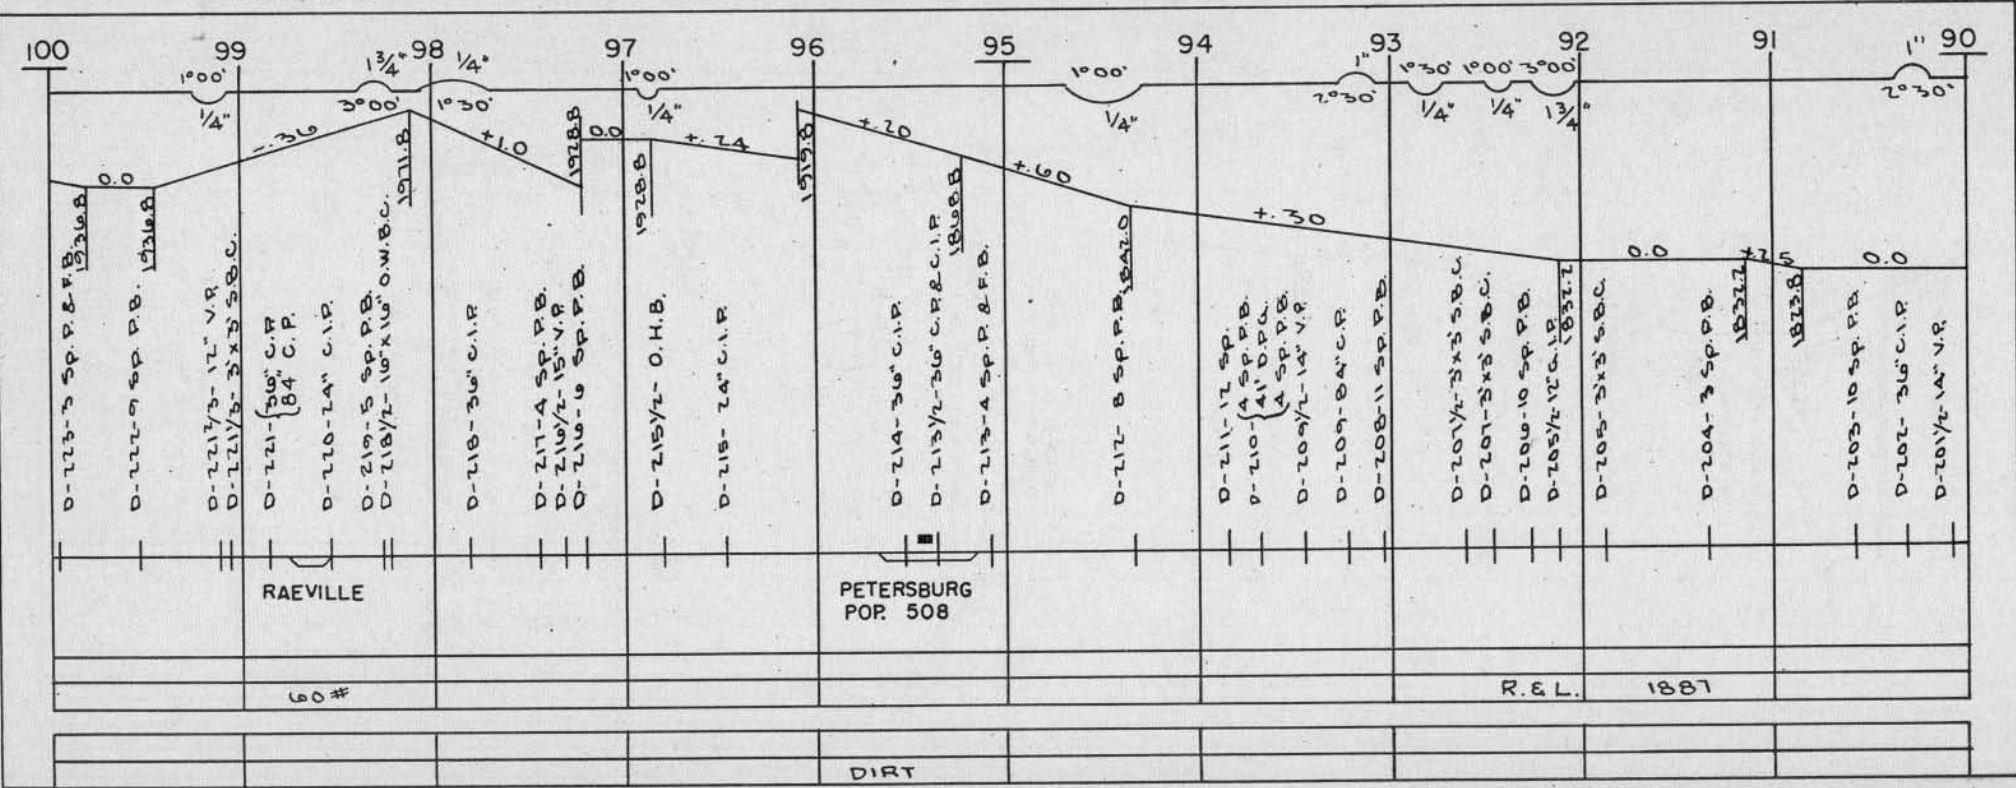 100 99 98 97 96 95 94 93 92 91 90
1°00' 1/4"
1 3/4" 3°00'
1/4" 1°30'
1°00' 1/4"
1°00' 1/4"
1" 2°30'
1°30' 1/4"
1°00' 1/4"
3°00' 1 3/4"
1" 2°30'
0.0
-.36
+1.0
0.0
+.24
+.20
+.60
+.30
0.0
+.25
0.0
1936.8
1936.8
1971.8
1928.8
1928.8
1919.8
1868.8
1842.0
1832.2
1832.2
1823.8
D-223-3 SP. P. & F.B.
D-222-9 SP. P.B.
D-221 2/3-12" V.P.
D-221 1/3-3'x3' S.B.C.
D-221-{36" C.P.
{84" C.P.
D-220-24" C.I.P.
D-219-5 SP. P.B.
D-218 1/2-16"x16" O.W.B.C.
D-218-36" C.I.P.
D-217-4 SP. P.B.
D-216 1/2-15" V.P.
D-216-6 SP. P.B.
D-215 1/2-O.H.B.
D-215-24" C.I.P.
D-214-36" C.I.P.
D-213 1/2-36" C.P. & C.I.P.
D-213-4 SP. P. & F.B.
D-212-8 SP. P.B.
D-211-12 SP.
D-210-{4 SP. P.B.
{41' D.P.G.
{4 SP. P.B.
D-209 1/2-14" V.P.
D-209-84" C.P.
D-208-11 SP. P.B.
D-207 1/2-3'x3' S.B.C.
D-207-3'x3' S.B.C.
D-206-10 SP. P.B.
D-205 1/2-12" C.I.P.
D-205-3'x3' S.B.C.
D-204-3 SP. P.B.
D-203-10 SP. P.B.
D-202-36" C.I.P.
D-201 1/2-14" V.P.
RAEVILLE
PETERSBURG
POP. 508
60# R. & L. 1887
DIRT